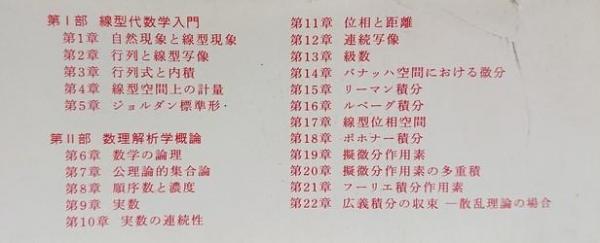 第Ⅰ部 線型代数学入門
第1章 自然現象と線型現象
第2章 行列と線型写像
第3章 行列式と内積
第4章 線型空間上の計量
第5章 ジョルダン標準形・
第Ⅱ部 数理解析学概論
第6章 数学の論理
第7章 公理論的集合論
第8章 順序数と濃度
第9章 実数
第10章 実数の連続性
第11章 位相と距離
第12章 連続写像
第13章 級数
第14章 バナッハ空間における微分
第15章 リーマン積分
第16章 ルベーグ積分
第17章 線型位相空間
第18章 ボホナー積分
第19章 擬微分作用素
第20章 擬微分作用素の多重積
第21章 フーリエ積分作用素
第22章 広義積分の収束 ―散乱理論の場合